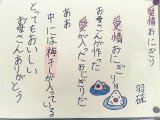 愛情おにぎり
羽硫
愛情おにぎり
お母さんが作った
愛が入ったおにぎりだ
ああ
中には梅干しが入っている
とってもおいしい
お母さんありがとう